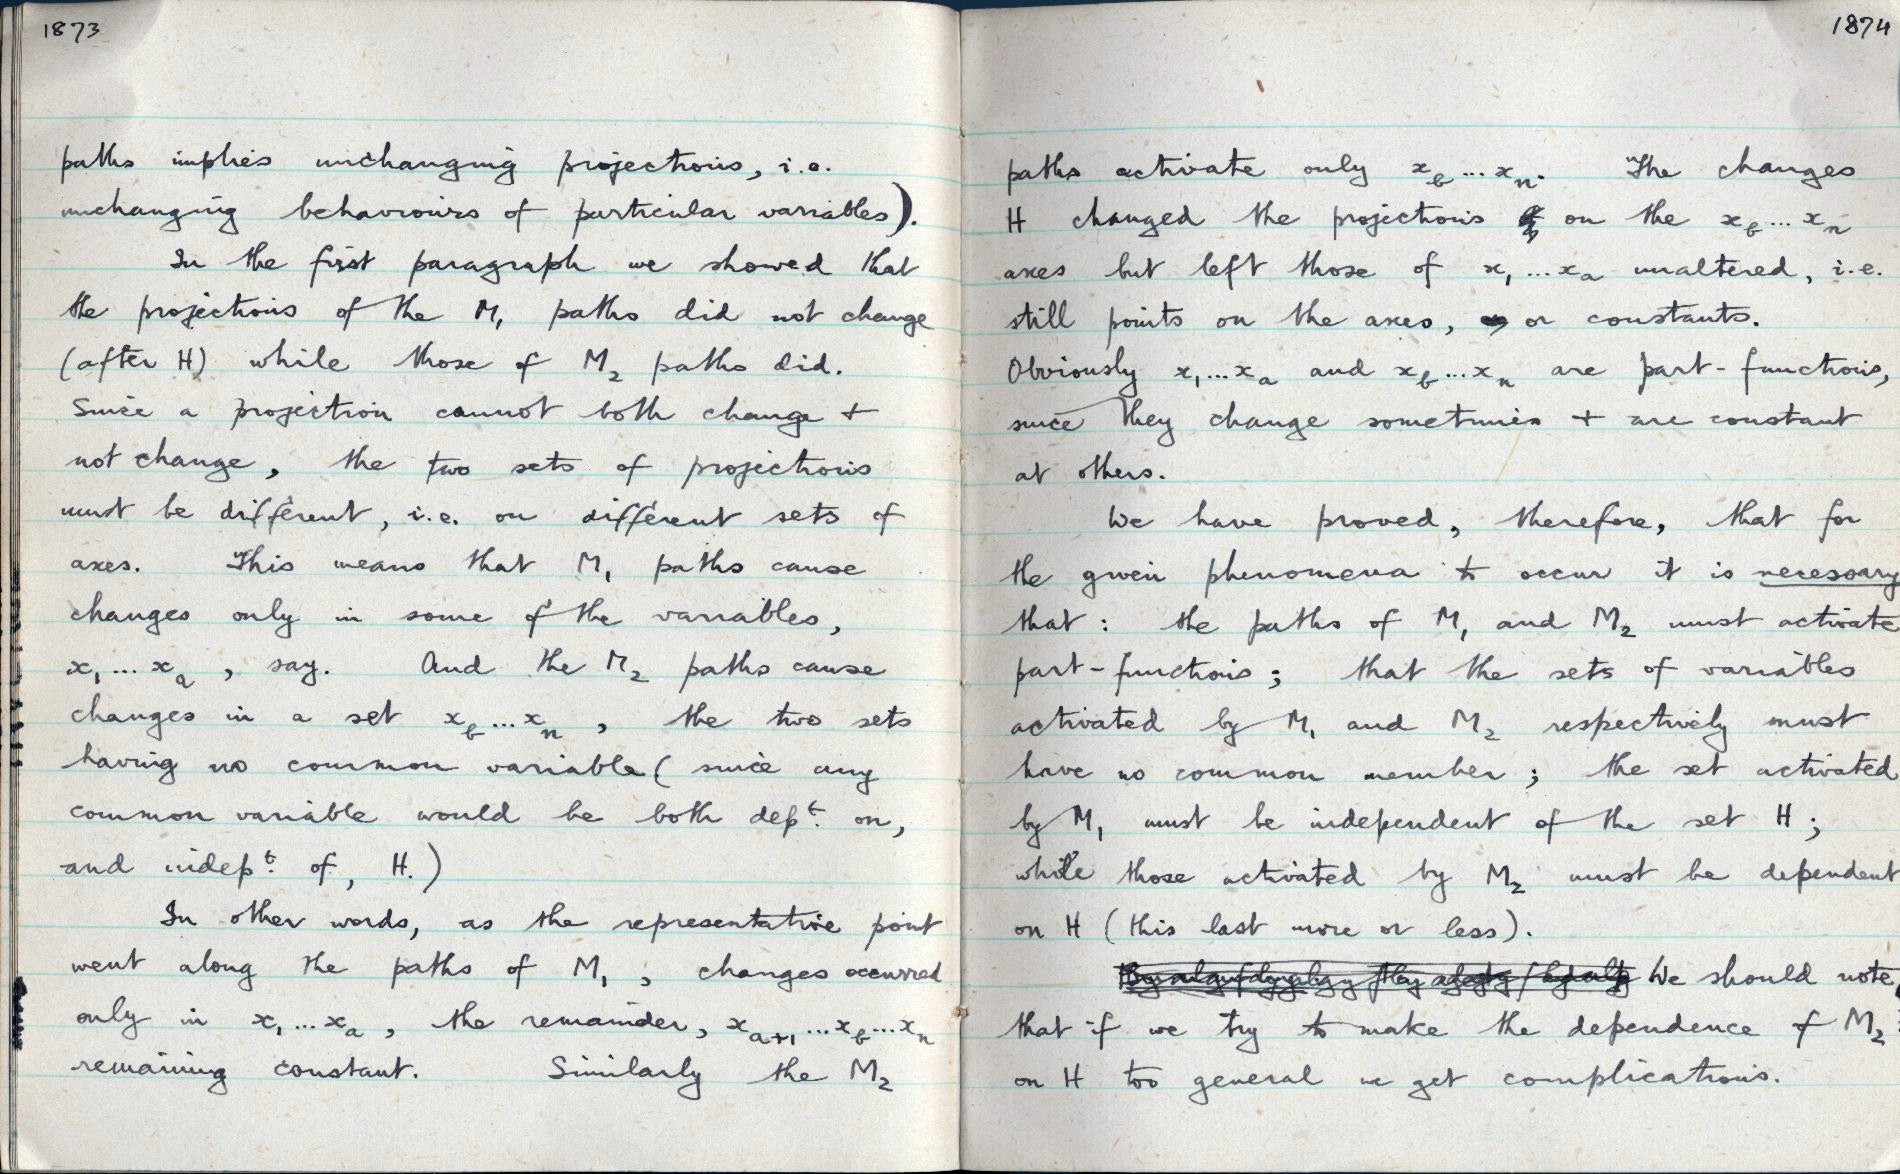 1873
paths implies unchanging projections, i.e.
unchanging behaviours of particular variables).
In the first paragraph we showed that
the projections of the M₁ paths did not change
(after H) while those of M₂ paths did.
Since a projection cannot both change +
not change, the two sets of projections
must be different, i.e. on different sets of
axes. This means that M₁ paths cause
changes only in some of the variables,
x₁ ... xₐ, say. And the M₂ paths cause
changes in a set x_b ... x_n, the two sets
having no common variable (since any
common variable would be both depᵗ. on,
and indepᵗ. of, H.)
In other words, as the representative point
went along the paths of M₁, changes occurred
only in x₁ ... xₐ, the remainder, x_{a+1} ... x_b ... x_n
remaining constant. Similarly the M₂
1874
paths activate only x_b ... x_n. The changes
H changed the projections on the x_b ... x_n
axes but left those of x₁ ... xₐ unaltered, i.e.
still points on the axes, or constants.
Obviously x₁ ... xₐ and x_b ... x_n are part-functions,
since they change sometimes + are constant
at others.
We have proved, therefore, that for
the given phenomena to occur it is necessary
that: the paths of M₁ and M₂ must activate
part-functions; that the sets of variables
activated by M₁ and M₂ respectively must
have no common member; the set activated
by M₁ must be independent of the set H;
while those activated by M₂ must be dependent
on H (this last more or less).
We should note,
that if we try to make the dependence of M₂
on H too general we get complications.